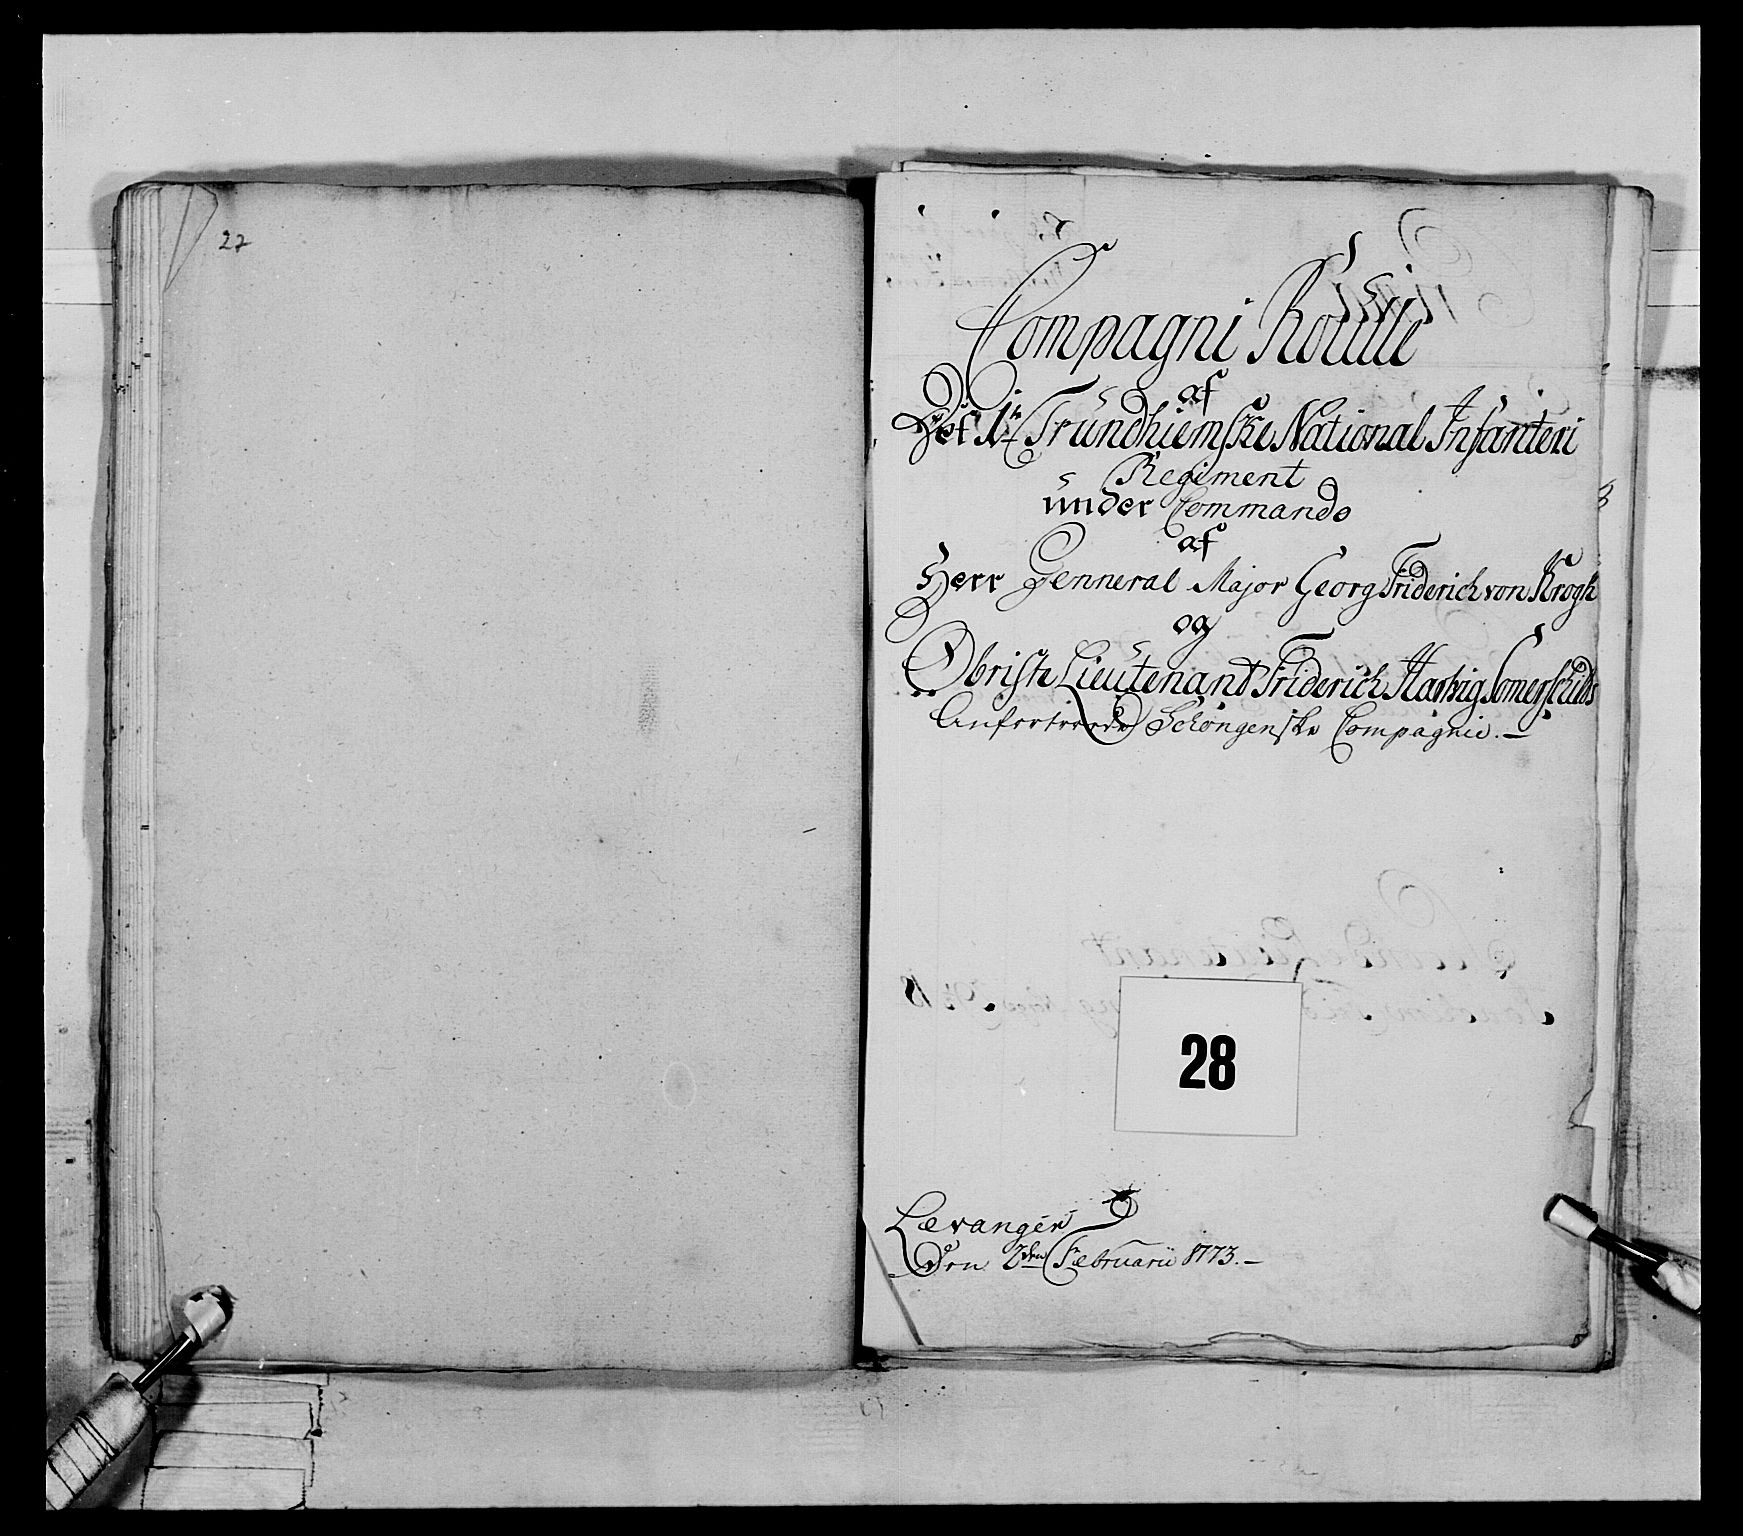 27
Compagni Roulle
af
Det 1te Trundhiemske National Infanteri
Regiment
under Commando
af
Herr Genneral Major Georg Friderich von Krogh
og
Obriste Lieutenant Friderich Hartvig Somerschilds
Anfortroede Schøngenske Compagnie.
28
Levanger
Den 2den Februarii 1773.